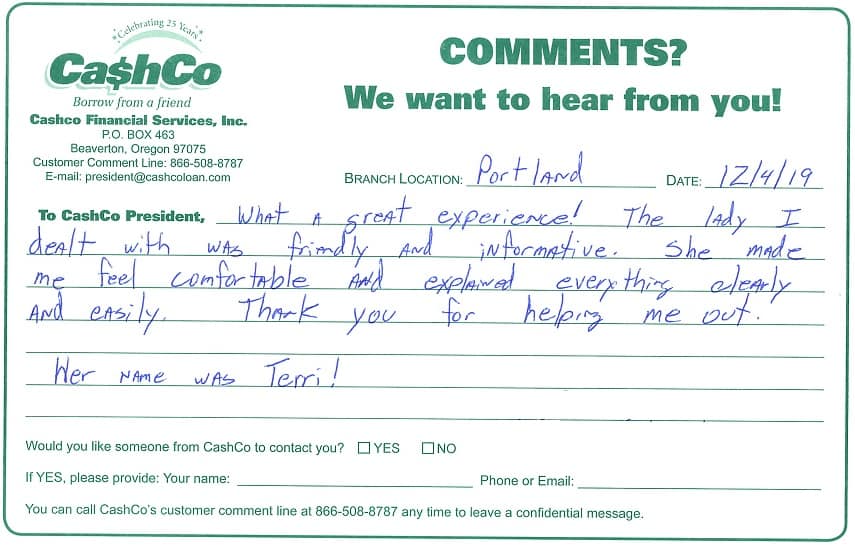 Celebrating 25 Years
Ca$hCo
Borrow from a friend
Cashco Financial Services, Inc.
P.O. BOX 463
Beaverton, Oregon 97075
Customer Comment Line: 866-508-8787
E-mail: president@cashcoloan.com
COMMENTS?
We want to hear from you!
BRANCH LOCATION: Portland DATE: 12/4/19
To CashCo President, What a great experience! The lady I
dealt with was friendly and informative. She made
me feel comfortable and explained everything clearly
and easily. Thank you for helping me out.
Her name was Terri!
Would you like someone from CashCo to contact you? ☐ YES ☐ NO
If YES, please provide: Your name: Phone or Email:
You can call CashCo's customer comment line at 866-508-8787 any time to leave a confidential message.